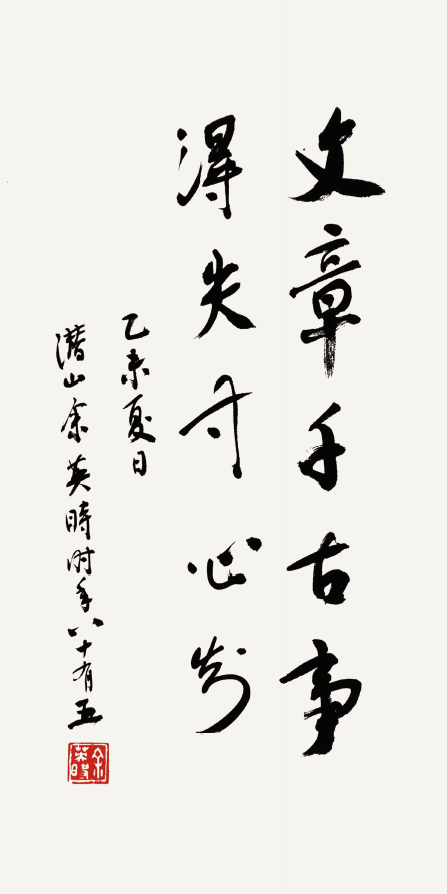 文章千古事
得失寸心知
乙未夏日
潛山余英時时年八十有五
余英時